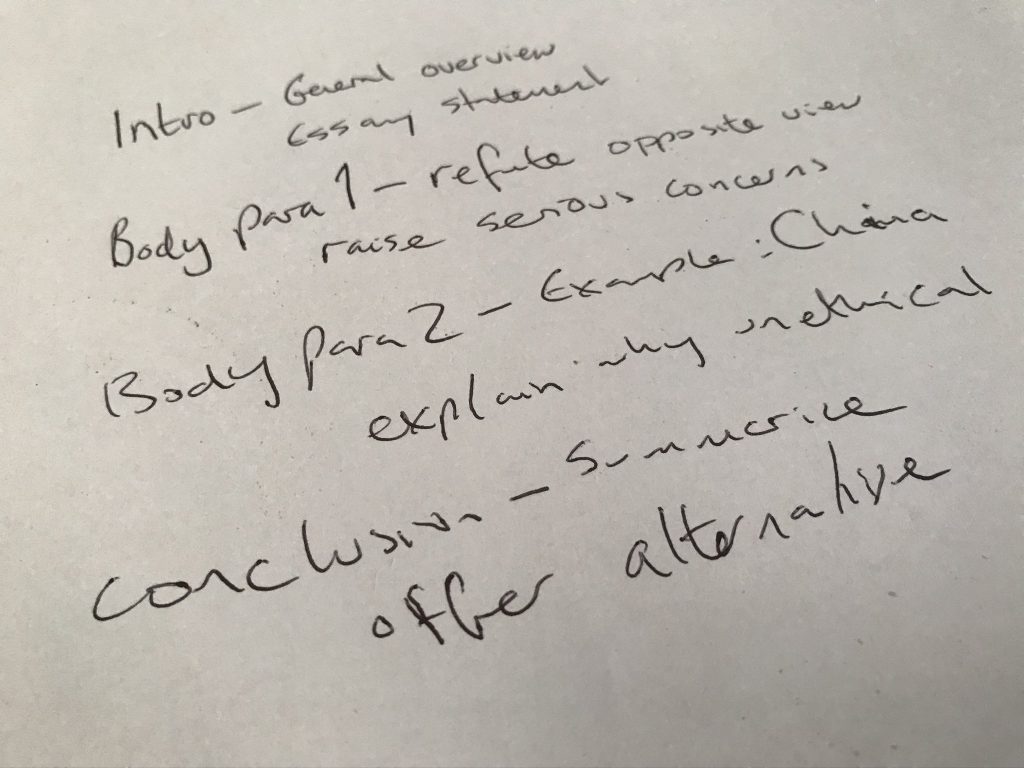 Intro – General overview
Essay statement
Body para 1 – refute opposite view
raise serious concerns
Body para 2 – Example : China
explain why unethical
Conclusion – Summarice
offer alternative